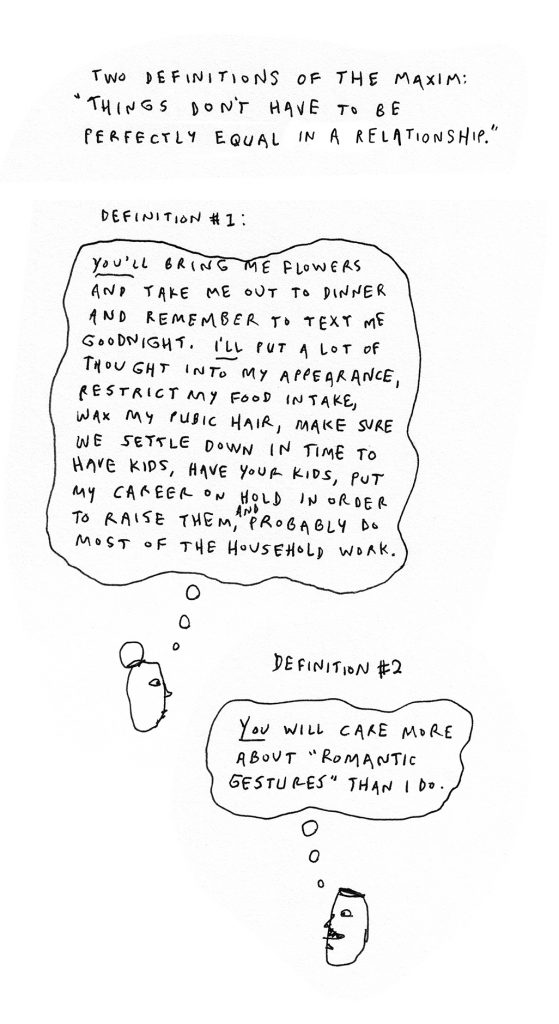 TWO DEFINITIONS OF THE MAXIM:
"THINGS DON'T HAVE TO BE
PERFECTLY EQUAL IN A RELATIONSHIP."
DEFINITION #1:
YOU'LL BRING ME FLOWERS
AND TAKE ME OUT TO DINNER
AND REMEMBER TO TEXT ME
GOODNIGHT. I'LL PUT A LOT OF
THOUGHT INTO MY APPEARANCE,
RESTRICT MY FOOD INTAKE,
WAX MY PUBIC HAIR, MAKE SURE
WE SETTLE DOWN IN TIME TO
HAVE KIDS, HAVE YOUR KIDS, PUT
MY CAREER ON HOLD IN ORDER
TO RAISE THEM, AND PROBABLY DO
MOST OF THE HOUSEHOLD WORK.
DEFINITION #2
YOU WILL CARE MORE
ABOUT "ROMANTIC
GESTURES" THAN I DO.